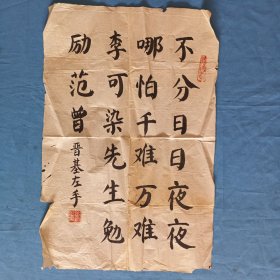 不分日日夜夜
哪怕千难万难
李可染先生勉
励范曾
晋基左手